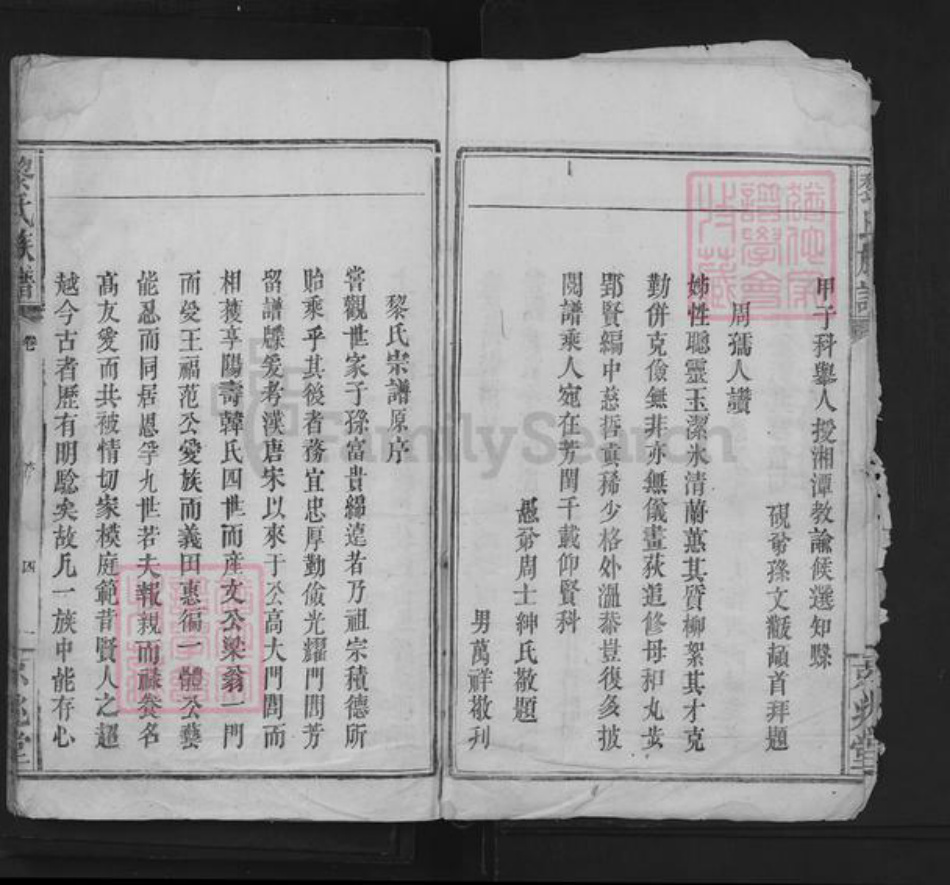 甲子科舉人授湘潭教諭候選知縣
硯爺孫文巘頓首拜題
周孺人讚
姊性聰靈玉潔氷清蘭蕙其質柳絮其才克
勤併克儉無非亦無儀畫荻追修母和丸
鄴賢編中慈哲真稀少格外溫恭豈復多披
閱譜乘人宛在芳閨千載仰賢科
愚爺周士紳氏敬題
男萬祥敬刋
黎氏宗譜原序
嘗觀世家子孫富貴綿遠者乃祖宗積德所
貽乘乎其後者務宜忠厚勤儉光耀門閭芳
留譜牒爰考漢唐宋以來于公高大門閭而
相獲享陽壽韓氏四世而産文公梁翁一門
而受王福范公愛族而義田惠徧一體公藝
能忍而同居恩孚九世若夫報親而蘇養名
髙友愛而共被情切家模庭範昔賢人之超
越今古者歴有明騐矣故凡一族中能存心
黎氏族譜
卷
四
京兆堂
黎氏族譜
京兆堂
FamilySearch